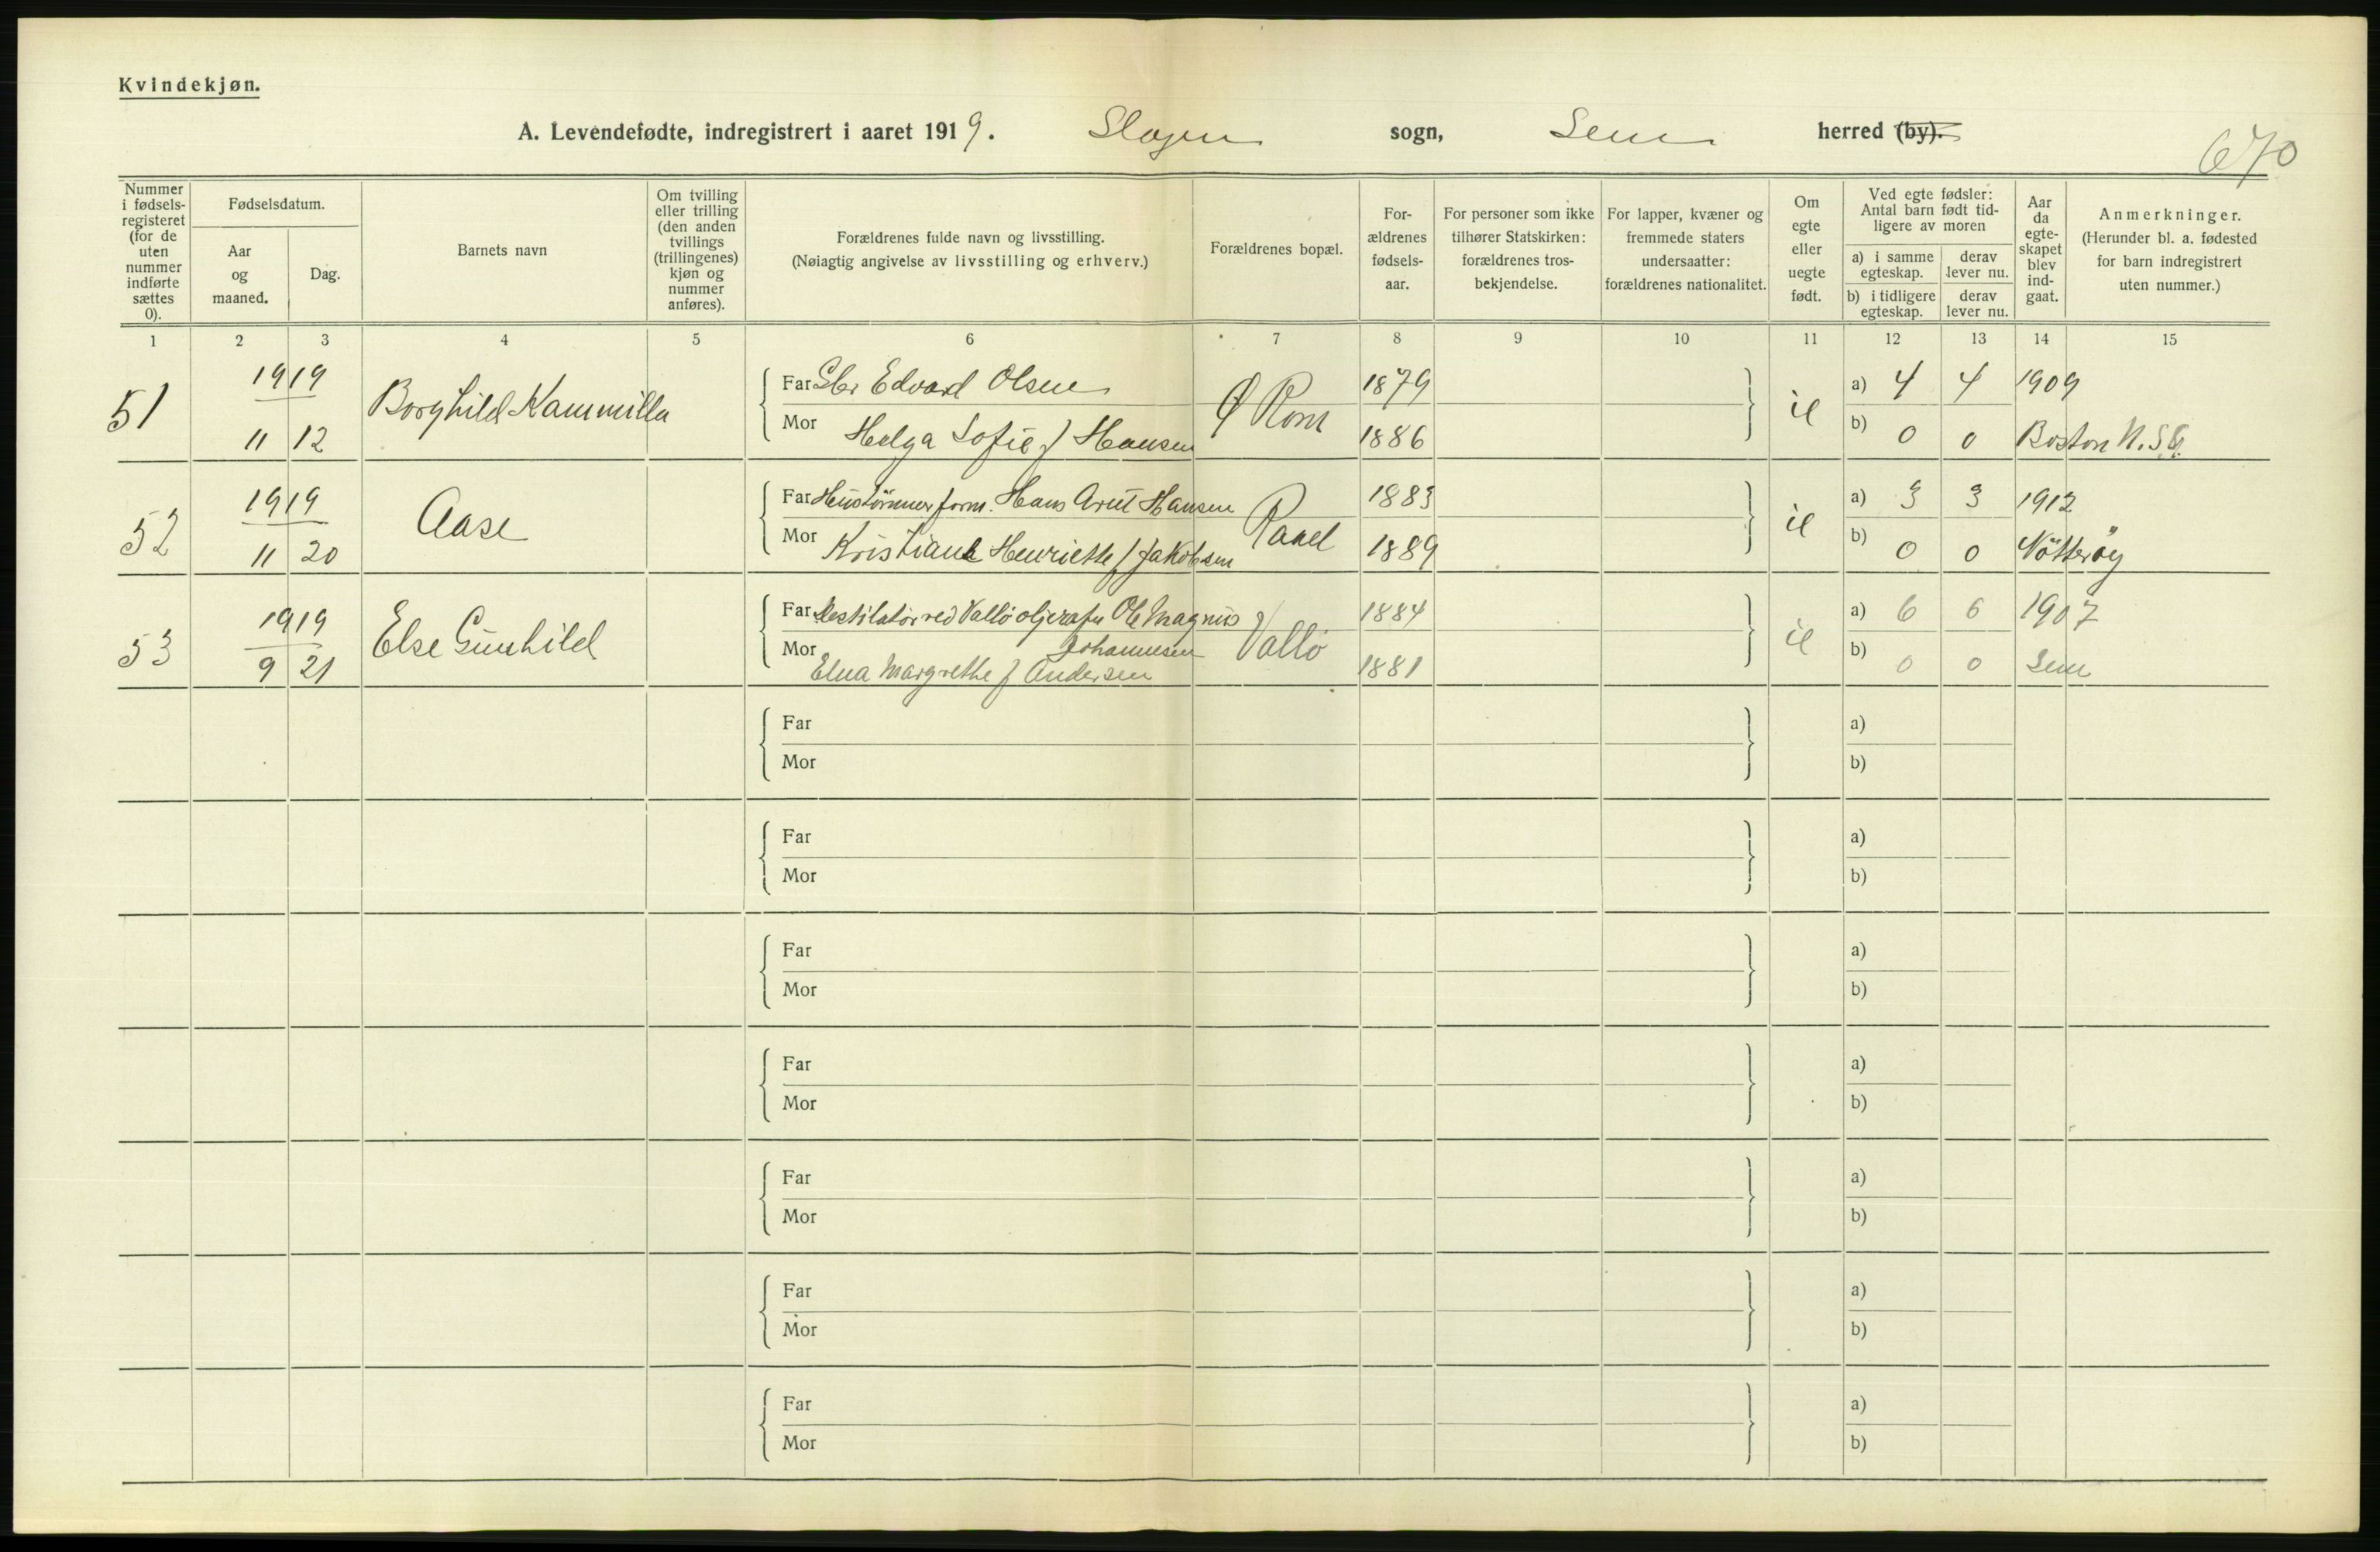 Kvindekjøn.
A. Levendefødte, indregistrert i aaret 1919. Slagen sogn, Sem herred (by).
670
Nummer i fødsels-registeret (for de uten nummer indførte sættes 0).
Fødselsdatum.
Aar og maaned.
Dag.
Barnets navn
Om tvilling eller trilling (den anden tvillings (trillingenes) kjøn og nummer anføres).
Forældrenes fulde navn og livsstilling.
(Nøiagtig angivelse av livsstilling og erhverv.)
Forældrenes bopæl.
For-ældrenes fødsels-aar.
For personer som ikke tilhører Statskirken: forældrenes tros-bekjendelse.
For lapper, kvæner og fremmede staters undersaatter: forældrenes nationalitet.
Om egte eller uegte født.
Ved egte fødsler: Antal barn født tid-ligere av moren
a) i samme egteskap.
derav lever nu.
b) i tidligere egteskap.
derav lever nu.
Aar da egte-skapet blev ind-gaat.
Anmerkninger.
(Herunder bl. a. fødested for barn indregistrert uten nummer.)
1 2 3 4 5 6 7 8 9 10 11 12 13 14 15
51 1919 11 12 Borghild Kammilla
Far Edvard Olsen 1879 a) 4 4 1909
Mor Helga Sofie f Hansen Ø Rom 1886 b) 0 0 Boston
52 1919 11 20 Aase
Far Hustømmer form. Hans Hansen 1883 a) 3 3 1912
Mor Kristiane Henriette f Jakobsen 1889 b) 0 0 Nötteröy
53 1919 9 21 Else Gunhild
Far Destilatör ved Vallö oljeraf Ole Magnus Johannesen Vallö 1884 a) 6 6 1907
Mor Elna Margrethe f Andersen 1881 b) 0 0 Sem
Far a)
Mor b)
Far a)
Mor b)
Far a)
Mor b)
Far a)
Mor b)
Far a)
Mor b)
Far a)
Mor b)
Far a)
Mor b)